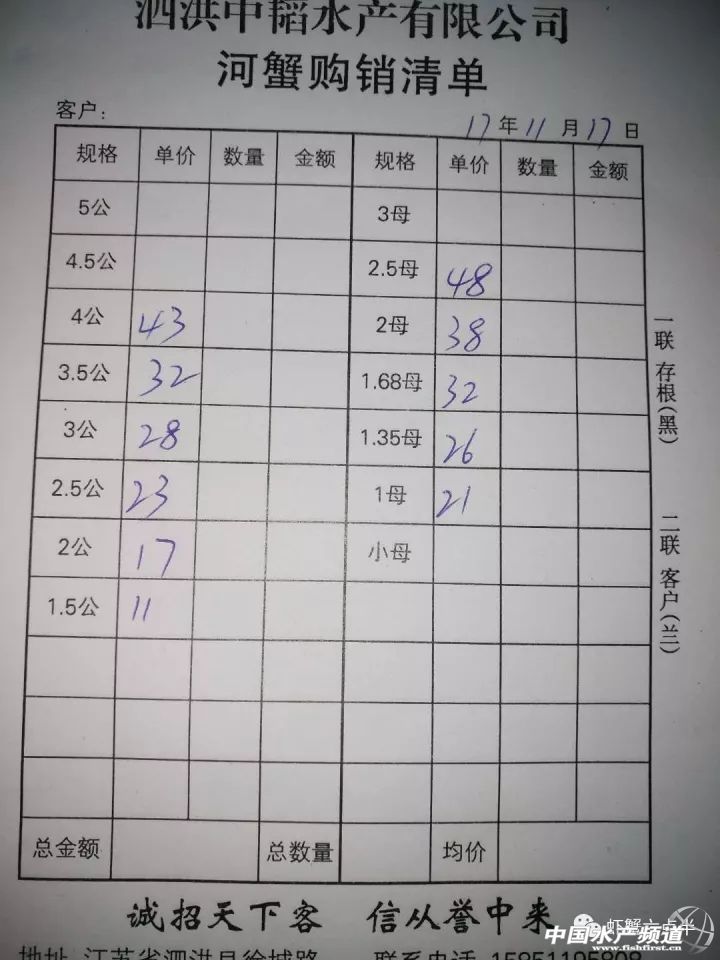 泗洪中韬水产有限公司
河蟹购销清单
客户: 17年11月17日
规格 单价 数量 金额 规格 单价 数量 金额
5公 3母
4.5公 2.5母 48
4公 43 2母 38
3.5公 32 1.68母 32
3公 28 1.35母 26
2.5公 23 1母 21
2公 17 小母
1.5公 11
总金额 总数量 均价
一联 存根(黑)
二联 客户(兰)
诚招天下客 信从誉中来
虾蟹六点半
中国水产频道
www.fishfirst.cn
地址 江苏省泗洪县徐城路 联系电话 15951195808